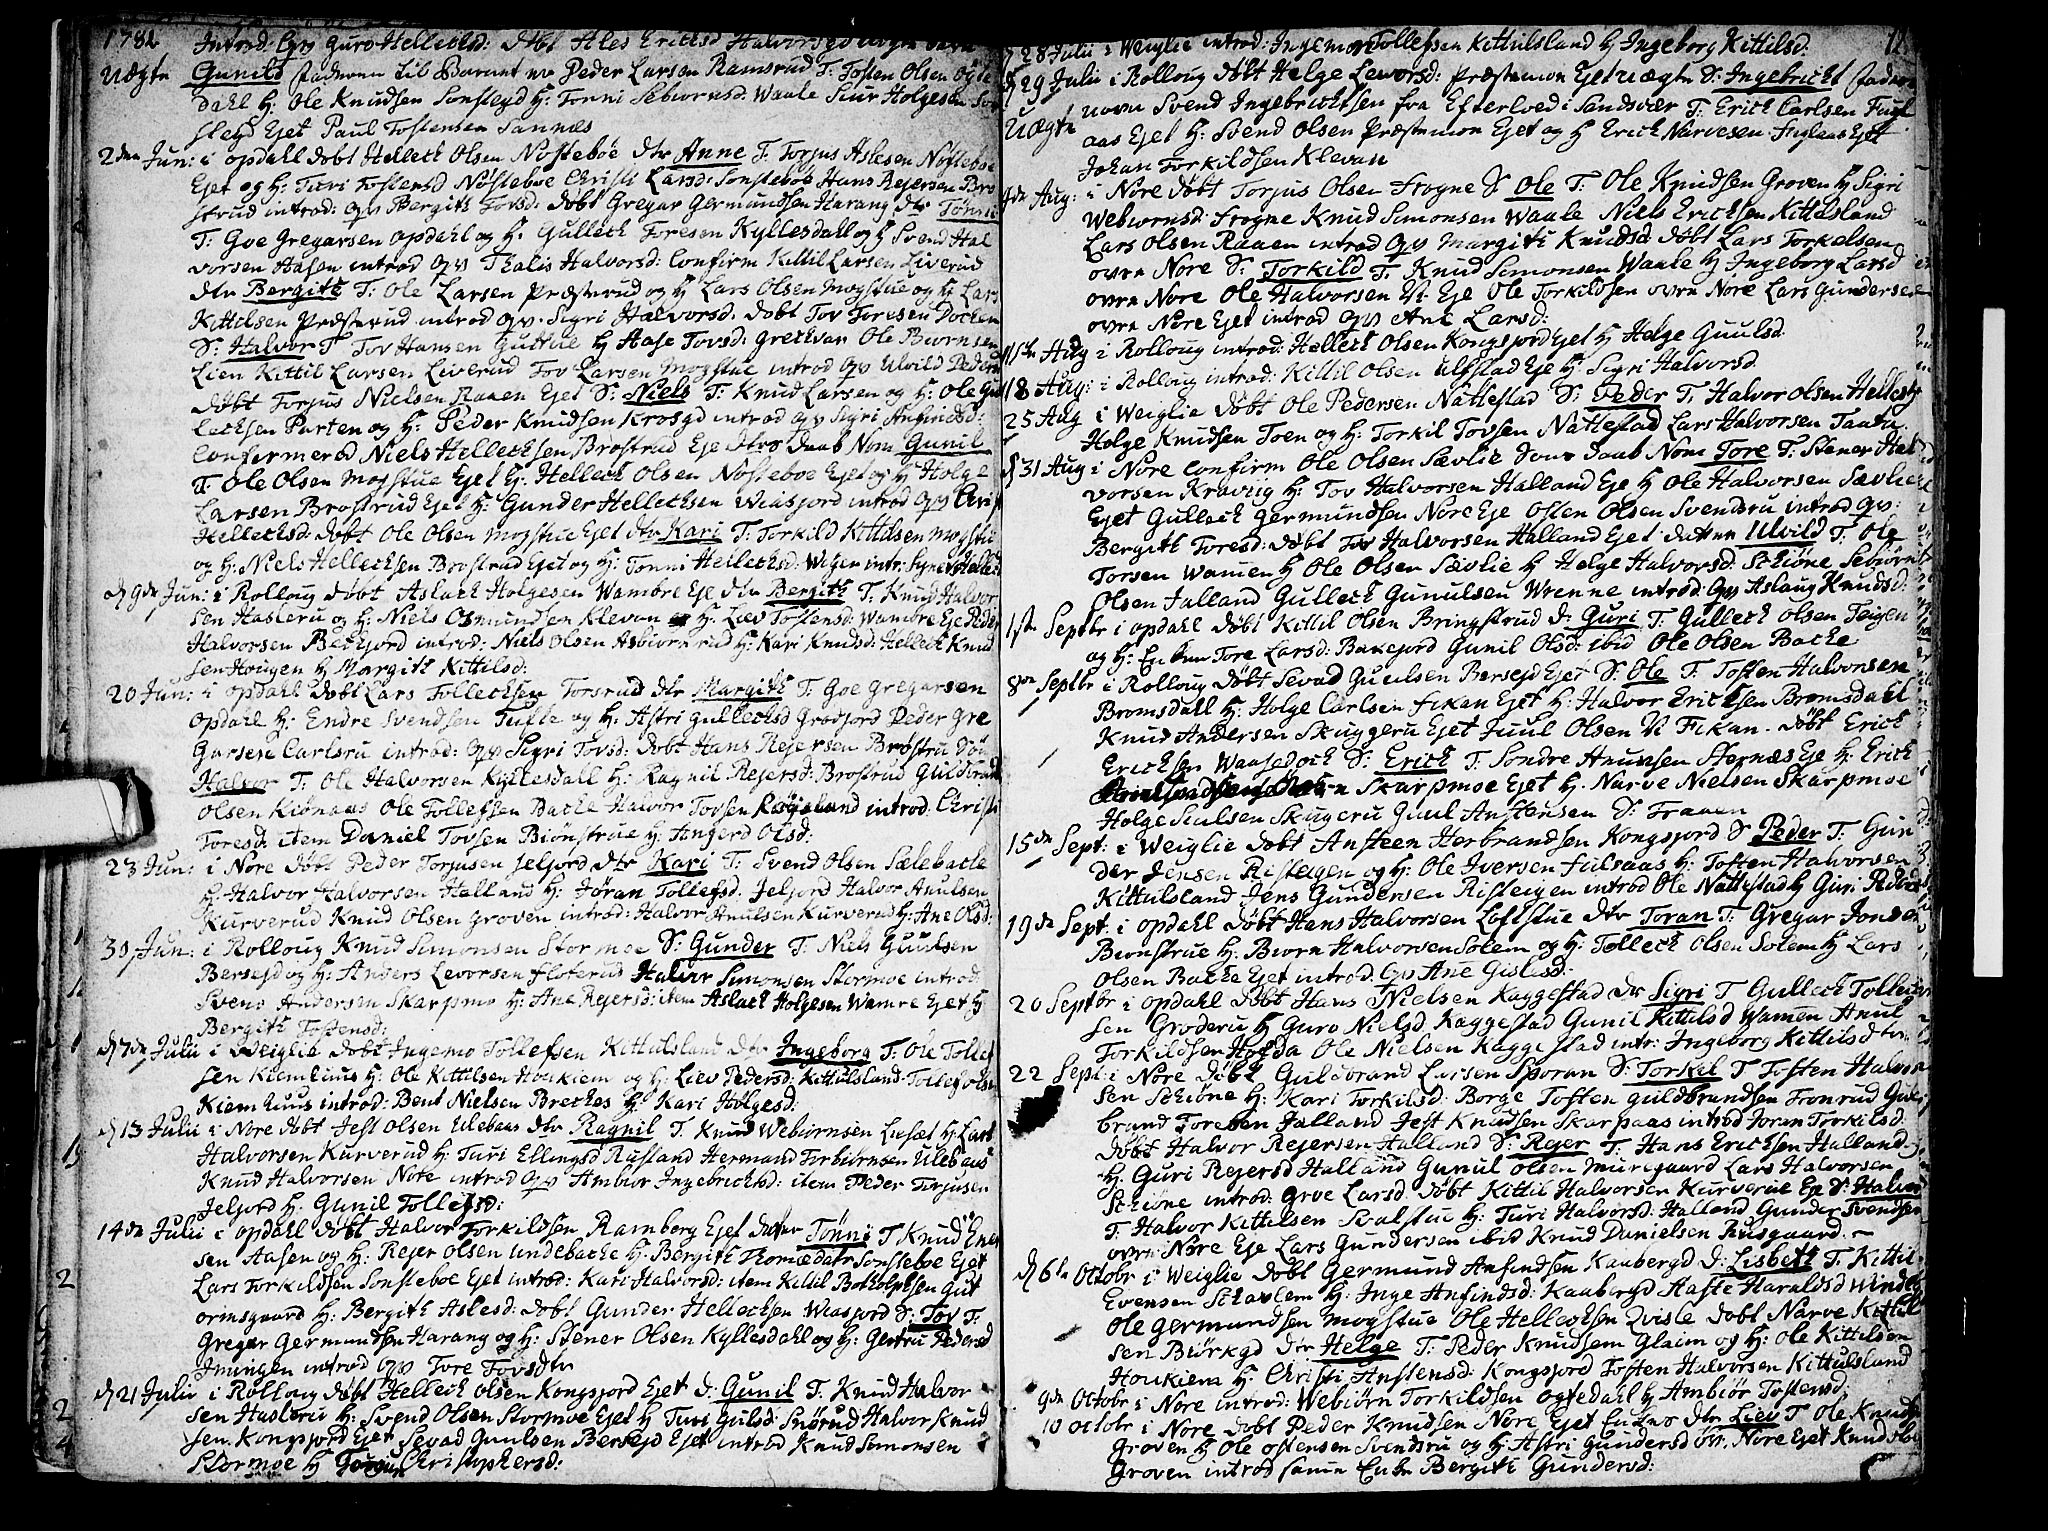 1782
Introd: Qv Guro Hellechsd: døbt Ales Erichsd Halvorsgd
Uægte Gunild faderen til Barnet er Peder Larsen Ramsrud T: Tosten Olsen
dahl H: Ole Knudsen Sonstegd H: Tonni Sebiornsd: Waale Siur Holgesen
stegd Ejet Paul Tostensen Sannes
2den Jun: i Opdahl døbt Hellech Olsen Nøsteboe dtr Anne T: Torjus Aslesen Nøsteboe
Ejet og H: Turi Tostensd Nøsteboe Christi Larsd: Sonsteboe Hans Rejersen Brø
strud introd: Qv Bergith Tovsd: døbt Gregar Germundsen Harang dtr Tønni
T: Goe Gregarsen Opdahl og H: Gullech Toresen Kyllesdall og H Svend Hal
vorsen Aasen introd Qv Thalis Halvorsd: Confirm Kittil Larsen Liverud
dtr Bergith T: Ole Larsen Præsterud og H Lars Olsen Mogstue og H: Lars
Kittilsen Præsterud introd Qv. Sigri Halvorsd. døbt Tov Toresen Docken
S: Halvor T Tov Hansen Guttue H Aase Tovsd: Grethvar Ole Biornsen
Lien Kittil Larsen Liverud Tov Larsen Mogstue introd Qv Ulvild Peders
døbt Torjus Nielsen Raaen Ejet S: Niels T: Knud Larsen og H: Ole Gul
lechsen Parten og H: Peder Knudsen Krosgd introd Qv Sigri Anfindsd:
Confirmerod Niels Hellechsen Brøstrud Eje dtrs Daab Nom Gunil
T: Ole Olsen Mogstue Ejet H: Hellech Olsen Nøsteboe Ejet og H Holge
Larsen Brøstrud Ejet H: Gunder Hellechsen Wiasjord introd Qv Christ
Hellechsd: døbt Ole Olsen Mogstue Ejet dtr Kari T: Torkild Kittilsen Mogstue
og H: Niels Hellechsen Brøstrud Ejet og H: Tonni Hellechsd: Wigen intr: Synev Hellech
d 9de Jun: i Rolloug døbt Aslach Holgesen Wambre Eje dtr Bergith T: Knud Halvor
sen Hasleru og H: Niels Osmundsen Klevan og H: Liev Tostensd: Wambre Eje Peder
Halvorsen Bechjord introd: Niels Olsen Asbiornrud H: Kari Knudsd: Hellech Knud
sen Hougen H Margith Kittilsd:
20 Jun: i Opdahl døbt Lars Tollechsen Torsrud dtr Margith T: Goe Gregarsen
Opdahl H: Endre Svendsen Tufte og H: Astri Gullechsd Grodjord Peder Gre
garsen Carlsru introd: Qv Sigri Tovsd: døbt Hans Rejersen Brøstru Søn
Halvor T: Ole Halvorsen Kyllesdall H: Ragnil Rejersd: Brostrud Guldbrand
Olsen Kiønaas Ole Tollefsen Bache Halvor Tovsen Røjseland introd: Christi
Toresd: item Daniel Tovsen Biønstrue H: Angerd Olsd:
23 Jun: i Nore døbt Peder Torjusen Jeljord dtr Kari T: Svend Olsen Sælebache
H: Halvor Halvorsen Halland H: Jøran Tollefsd: Jeljord Halvor Anulsen
Kurverud Knud Olsen Groven introd: Halvor Anulsen Kurverud H: Ane Olsd:
30 Jun: i Rolloug Knud Simonsen Stormoe S: Gunder T: Niels Guulsen
Bersejd og H: Anders Levorsen Floterud Halvor Simonsen Stormoe introd:
Svend Andersen Skarpmo H: Ane Rejersd: item Aslach Holgesen Wamre Ejet H
Bergith Tostensd:
d 7de Julii i Weiglie døbt Ingemo Tollefsen Kittulsland dtr Ingeborg T: Ole Tollef
sen Kiemhuus H: Ole Kittilsen Houkiem og H: Liev Pedersd: Kittulsland Tollef Olsen
Kiemhuus introd: Bent Nielsen Breches H: Kari Holgesd:
d 13 Julii i Nore døbt Jest Olsen Ulebaas dtr Ragnil T. Knud Webiørnsen Lusæt H: Lars
Halvorsen Kurverud H: Turi Ellingsd Rusland Hermand Torbiørnsen Ulebaas
Knud Halvorsen Nore introd Qv Ambiør Ingebrichtsd: item Peder Torjusen
Jeljord H: Gunil Tollefsd:
14de Julii i Opdahl døbt Halvor Torkildsen Ramberg Ejet datter Tønni T Knud Ener
sen Aasen og H: Rejer Olsen Undebache H: Bergith Thomædatr Sonsteboe Ejet
Lars Torkildsen Sonsteboe Ejet introd: Kari Halvorsd: item Kittil Botholphsen Gut
ormsgaard H: Bergith Aslesd: døbt Gunder Hellechsen Wiasjord S: Tov T:
Gregar Germundsen Harang og H: Stener Olsen Kyllesdahl og H: Gertru Pedersd
Imingen introd Qv Tore Tovsdtr
d 21 Julii i Rolloug døbt Hellech Olsen Kongsjord Ejet d: Gunil T: Knud Halvor
sen Hasleru H: Svend Olsen Stormoe Ejet H Turi Gulsd: Snørud Halvor Knud
sen Kongsjord Ejet Sevad Guulsen Bersejd Ejet introd Knud Simonsen
Stormoe H Christophersd:
d 28 Julii i Weiglie introd: Ingemo Tollefsen Kittulsland H Ingeborg Kittilsd:
d 29 Julii i Rolloug døbt Helge Levorsd: Præstemoe Ejet Uægte S: Ingebricht fader
Uægte navn Svend Ingebrichtsen fra Efterloed i Sandsvær T: Erich Carlsen Fugl
aas Ejet H: Svend Olsen Præstemoe Ejet og H Erich Narvesen Fuglaas Ejet
Johan Torkildsen Klevan
4de Aug: i Nore døbt Torjus Olsen Frogne S Ole T: Ole Knudsen Groven H Sigri
Webiornsd: Frogne Knud Simonsen Waale Niels Erichsen Kittilsland
Lars Olsen Raaen introd Qv Margith Knudsd døbt Lars Torkelsen
øvre Nore S: Torkild T. Knud Simonsen Waale H Ingeborg Larsd
øvre Nore Ole Halvorsen Eje Ole Torkildsen øvre Nore Lars Gundersen
øvre Nore Ejet introd Qv Ane Larsd:
11te Aug i Rolloug introd: Hellech Olsen Kongsjord Ejet H Helge Guulsd:
18 Aug: i Rolloug introd: Kittil Olsen Ulfstad Eje H: Sigri Halvorsd
25 Aug i Weiglie døbt Ole Pedersen Nattestad S: Peder T: Halvor Olsen Hellestg
Holge Knudsen Toen og H: Torkil Tovsen Nattestad Lars Halvorsen Taatu
d 31 Aug i Nore confirm Ole Olsen Sævlie Søns Daab Nom Tore T: Stener Hal
vorsen Kraviig H: Tov Halvorsen Halland Eje H Ole Halvorsen Sævlie
Ejet Gullech Germundsen Nore Eje Osten Olsen Svendsru introd Qv:
Bergith Toresd: døbt Tov Halvorsen Halland Ejet datter Ulvild T: Ole
Torsen Wamen H Ole Olsen Sævlie H Helge Halvorsd: Schiøne Sebiørn
Olsen Jalland Gullech Gunulsen Wrenne introd: Qv Aslaug Knudsd:
1ste Septbr i Opdahl døbt Kittil Olsen Bringstrud d: Guri T: Gullech Olsen Teigen
og H: Enken Tore Larsd: Bakejord Gunil Olsd: ibid Ole Olsen Bache
8de Septbr i Rolloug døbt Sevad Guulsen Bersejd Ejet S: Ole T. Tosten Halvorsen
Bromsdall H: Holge Carlsen Fikan Ejet H: Halvor Erichsen Bromsdahl
Knud Andersen Skuggeru Ejet Juul Olsen Fikan. døbt Erich
Erichsen Waasedoch S: Erich T: Sondre Anunsen Sternæs Eje H: Erich
Skarpmoe Ejet H: Narve Nielsen Skarpmoe
Holge Siulsen Skugeru Guul Anstensen Fraaen
15de Sept: i Weiglie døbt Ansteen Herbrandsen Kongsjord S Peder T: Gun
der Jensen Risteigen og H: Ole Iversen Fulsaas H: Tosten Halvorsen
Kittulsland Jens Gundersen Risteigen introd Ole Nattestad H Guri
19de Sept: i Opdahl døbt Hans Halvorsen Loftstue dtr Toran T: Gregar Jonsen
Bionstrue H: Biorn Halvorsen Solem og H: Tollech Olsen Solem H Lars
Olsen Bache Ejet introd: Qv Ane Gislesd:
20 Septbr i Opdahl døbt Hans Nielsen Kaggestad dtr Sigri T Gullech Tollech
sen Groderu H Guro Nielsd Kaggestad Gunil Kittilsd Wamen Anul
Torkildsen Hofda Ole Nielsen Kaggestad intr: Ingeborg Kittilsdtr
22 Sept: i Nore døbt Guldbrand Larsen Sporan S: Torkel T Tosten Halvor
sen Schiøne H: Kari Torkilsd: Borge Tosten Guldbrandsen Tronrud Gul
brand Toresen Jalland Jest Knudsen Skarpaas introd Joran Torkilsd:
døbt Halvor Rejersen Halland S: Rejer T: Hans Erichsen Halland
H: Guri Rejersd Halland Gunul Olsen Muregaard Lars Halvorsen
Schiøne introd: Groe Larsd. døbt Kittil Halvorsen Kurverue Eje S: Halvor
T: Halvor Kittilsen Svalstue H: Turi Halvorsd: Halland Gunder Svendsen
øvre Nore Eje Lars Gundersen ibid Knud Danielsen Rusgaard.
d 6te Octobr i Weiglie døbt Germund Anfindsen Kaabergd d: Lisbeth T. Kittil
Evensen Schavlem H: Inge Anfindsd: Kaabergd Aaste Haraldsd
Ole Germundsen Mogstue Ole Hellechsen Qvisle døbt Narve Kittil
sen Biørkgd dtr Helge T: Peder Knudsen Glaim og H: Ole Kittilsen
Houkiem H: Christi Anstensd: Kongsjord Tosten Halvorsen Kittulsland
9de Octobr i Nore introd: Webiørn Torkildsen Ogsedahl H Ambiør Tostensd:
10 Octobr i Nore døbt Peder Knudsen Nore Ejet Enkes dtr Liev T Ole Knuds
Groven H Ole Ostensen Svendsru og H: Astri Gundersd øvr. Nore Ejet Knud Ols
Groven introd samme Enke Bergith Gundersd: